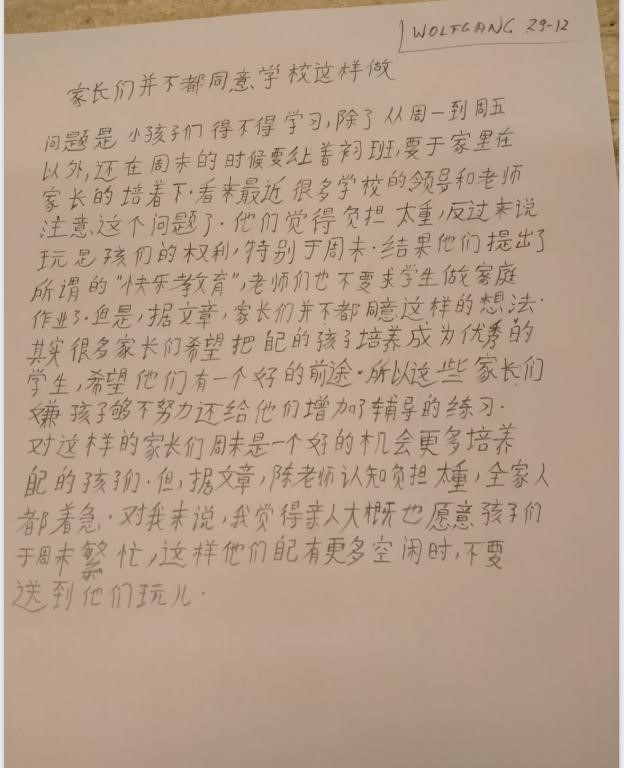 WOLFGANG 29-12
家长们并不都同意学校这样做
问题是 小孩子们 得不得学习, 除了 从周一到周五
以外, 还在周末的时候要上着补班, 要于家里在
家长的培养下. 看来最近很多学校的领导和老师
注意这个问题了. 他们觉得负担太重, 反过来说
玩是孩们的权利, 特别于周末. 结果他们提出了
所谓的"快乐孝教育", 老师们也不要求学生做家庭
作业了. 但是, 据文章, 家长们并不都同意这样的想法.
其实很多家长们希望把自己的孩子培养成为优秀的
学生, 希望他们有一个好的前途. 所以这些家长们
嫌孩子够不努力还给他们增加了辅导的练习.
对这样的家长们周末是一个好的机会更多培养
自己的孩子们. 但, 据文章, 陈老师认知负担太重, 全家人
都着急. 对我来说, 我觉得亲人大概也愿意孩子们
于周末繁忙, 这样他们自己有更多空闲时, 不要
送到他们玩儿.